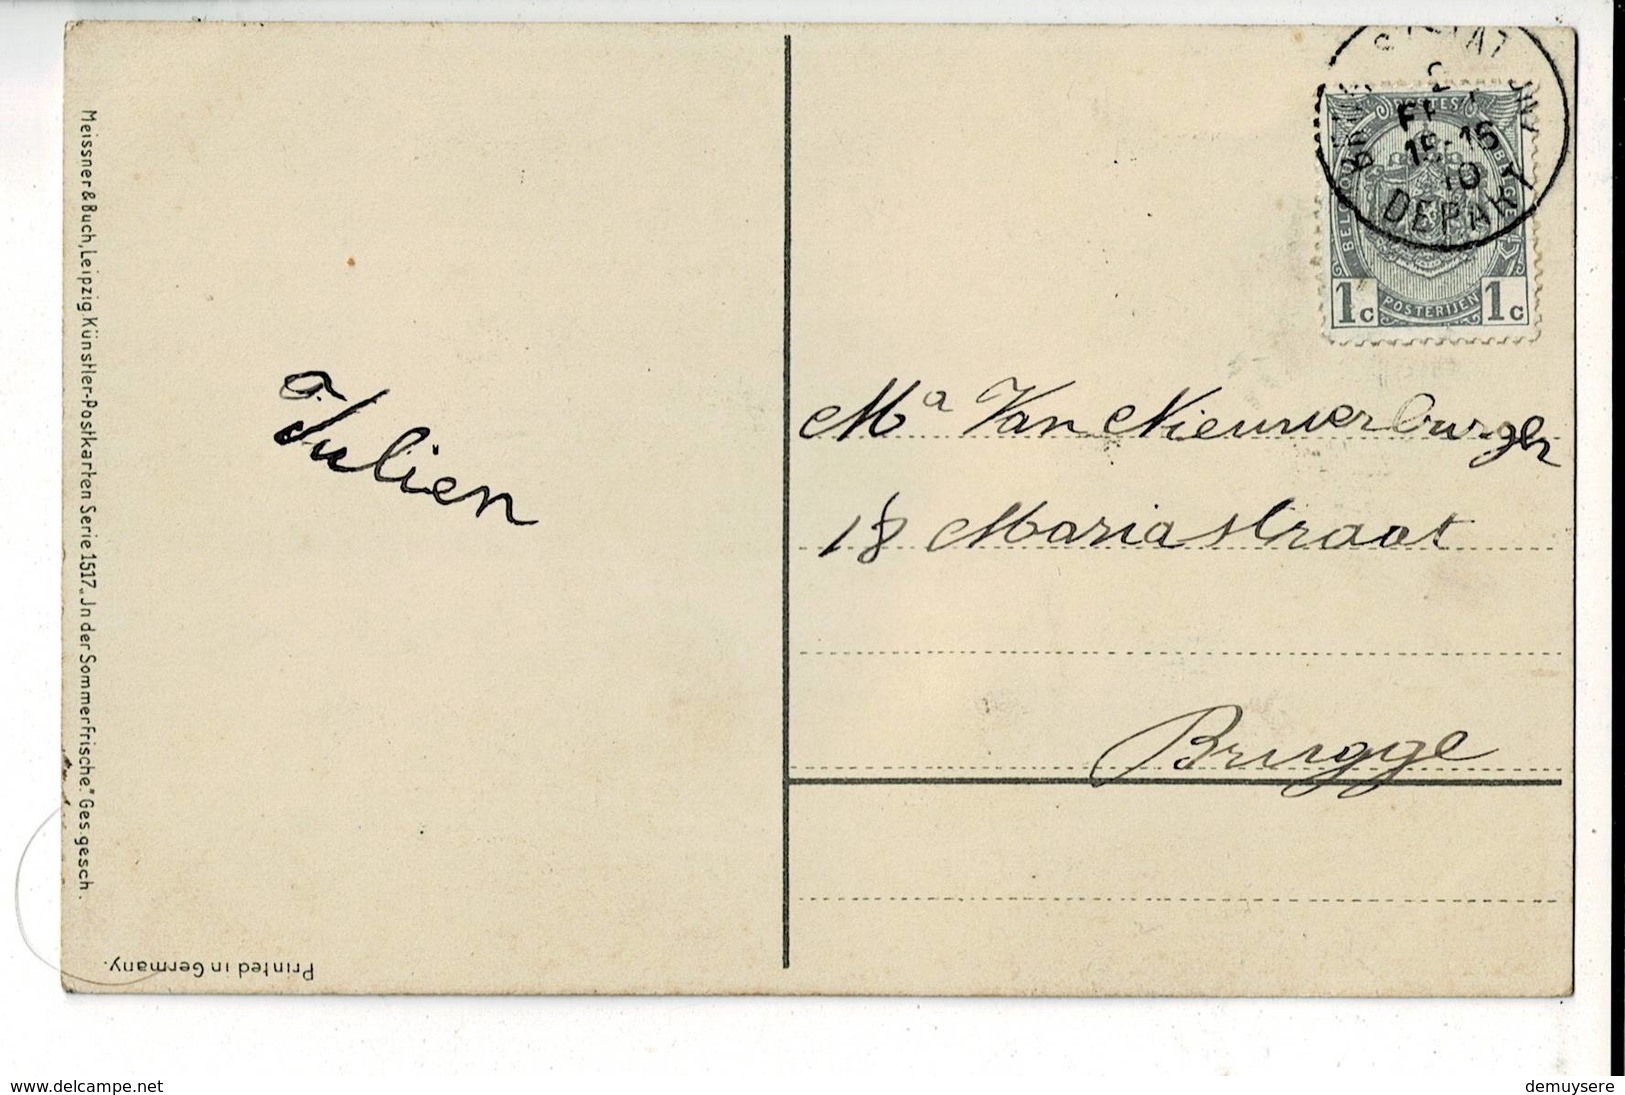 Meissner & Buch, Leipzig Künstler-Postkarten Serie 1517. „Jn der Sommerfrische." Ges. gesch.
Printed in Germany.
Julien
15-15
10
DEPART
POSTES
BELGIQUE
BELGIË
POSTERIJEN
1c 1c
Ma Van Nieuwerburgh
18 Mariastraat
Brugge
www.delcampe.net
demuysere